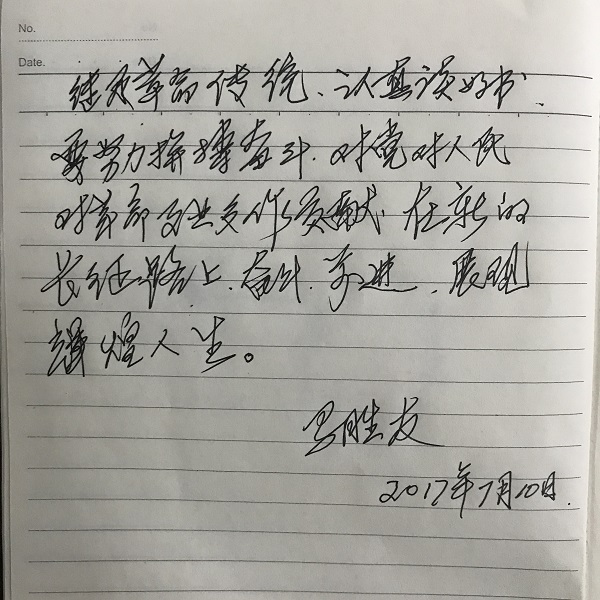 No.
Date.
继承革命传统、认真读好书、
要努力拼搏奋斗、对党对人民
对革命事业多作贡献、在新的
长征路上、奋斗、前进、展现
辉煌人生。
马胜友
2017年7月10日.